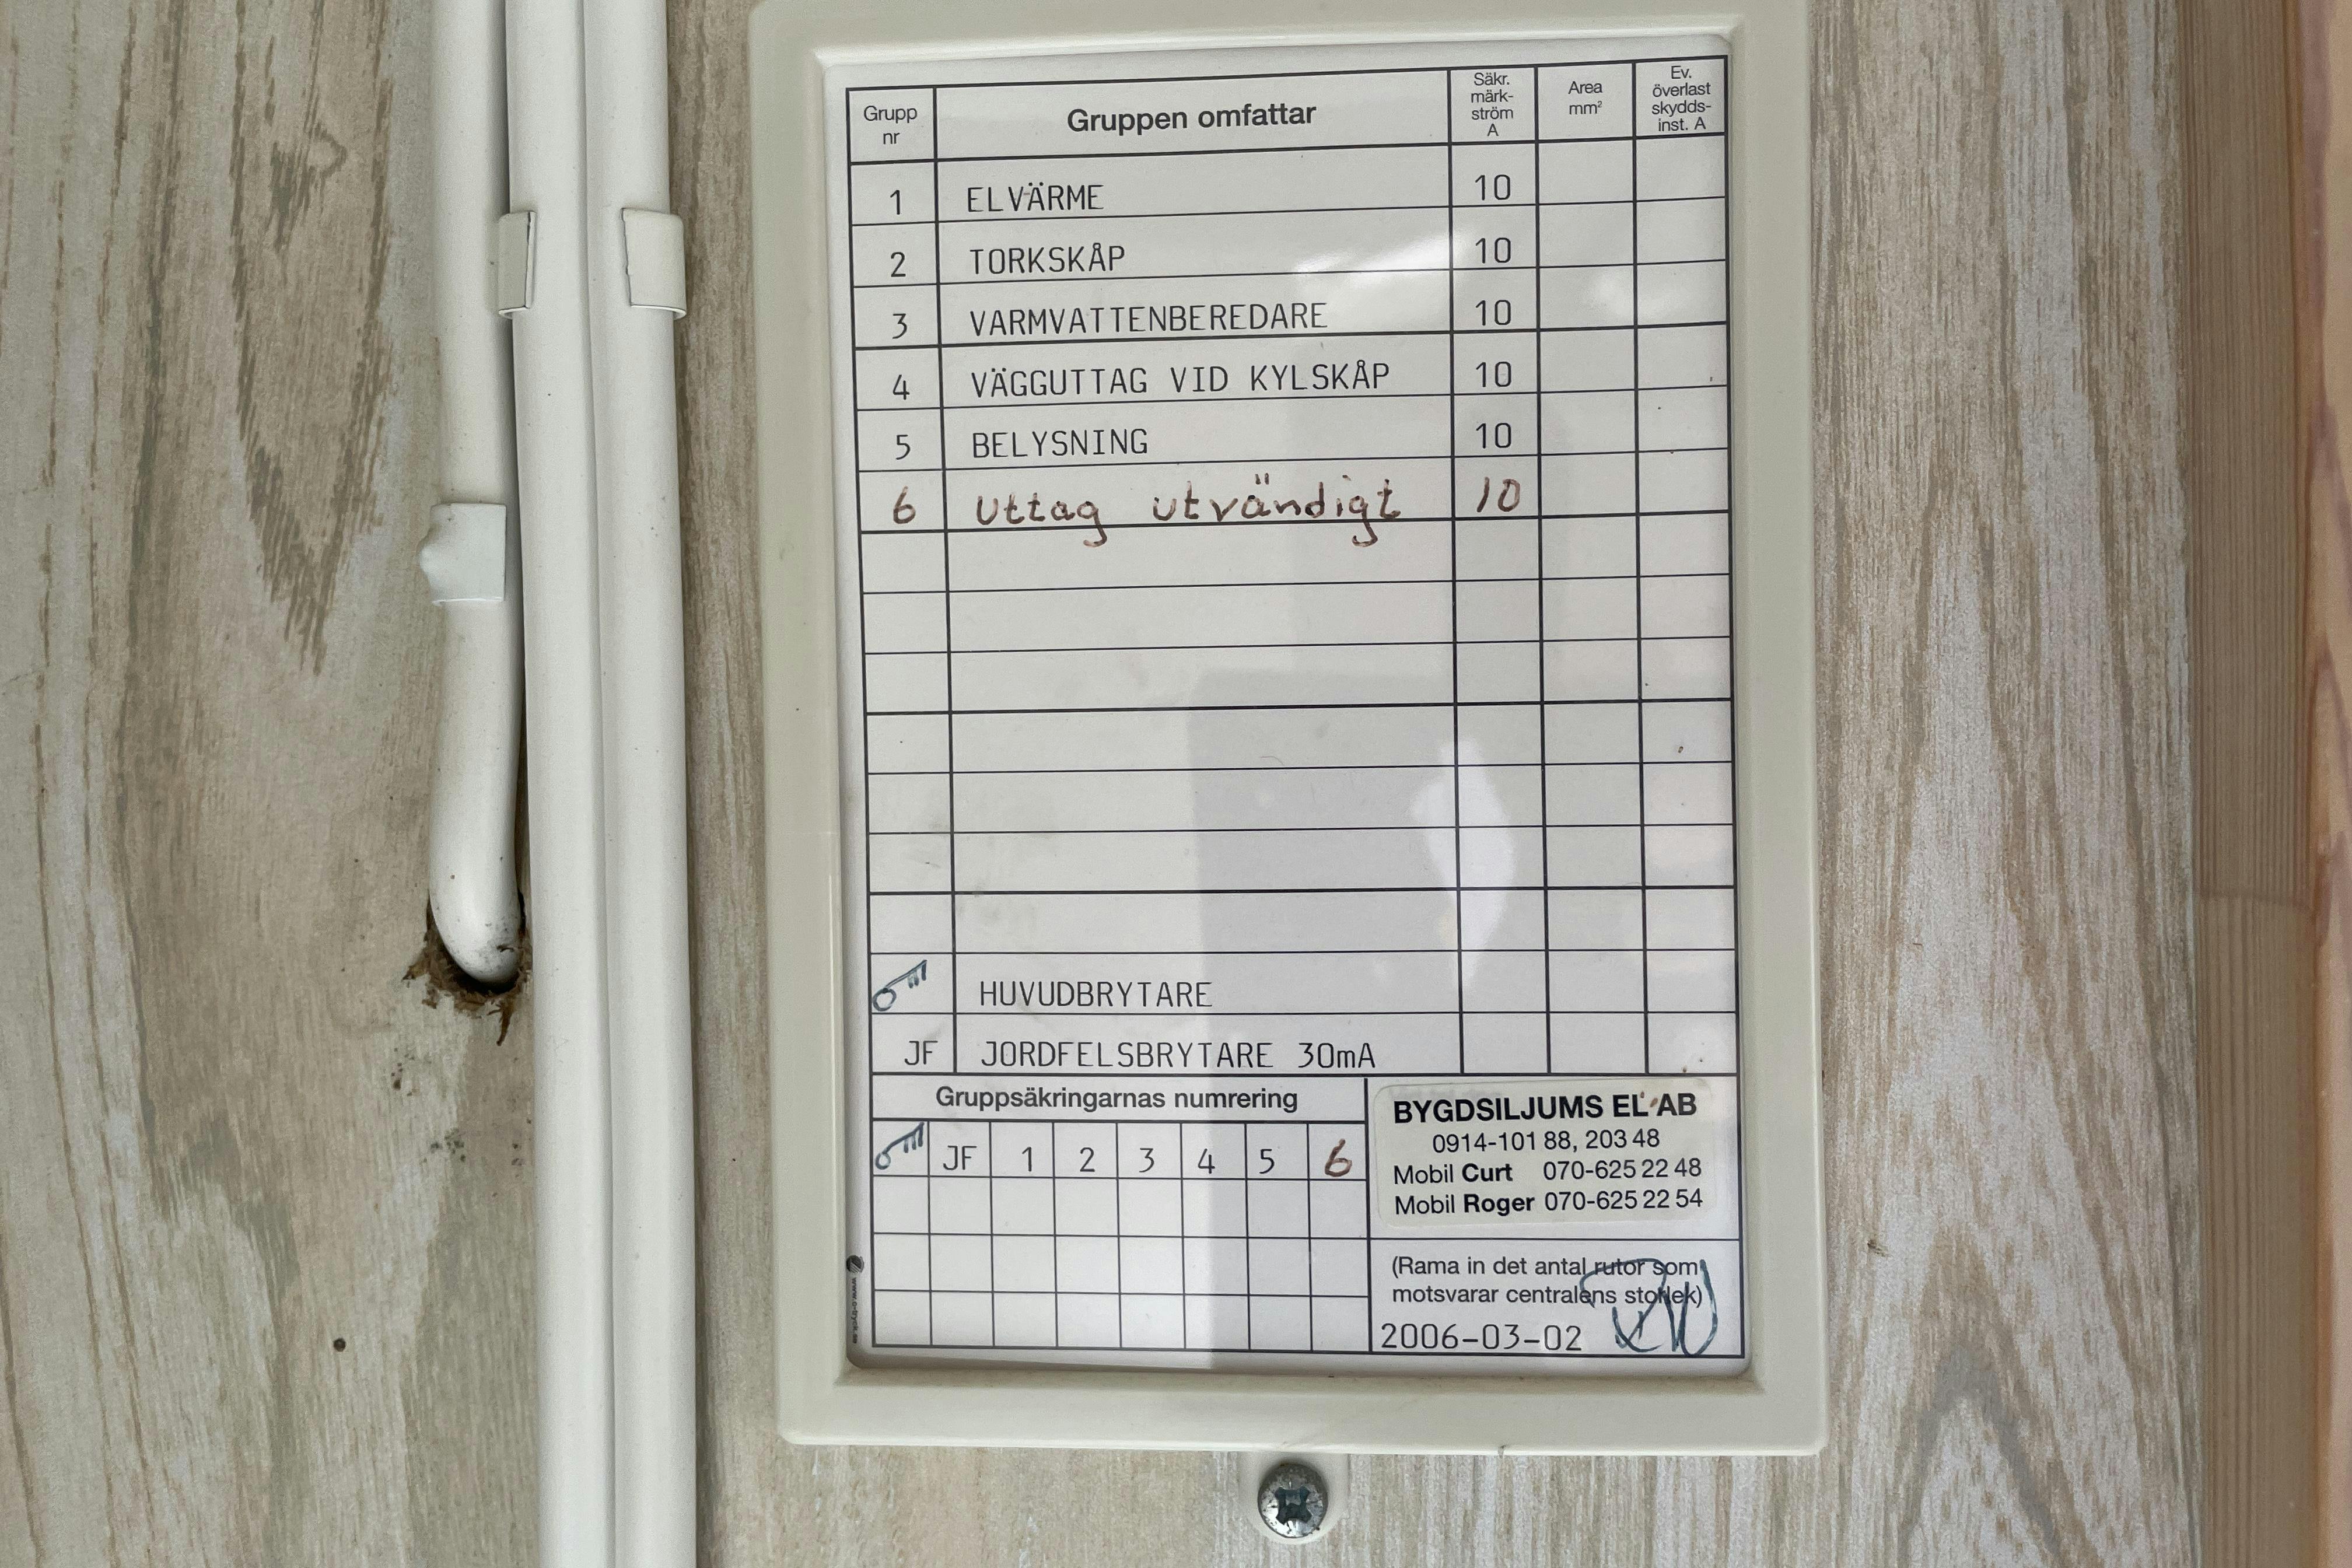 Grupp nr
Gruppen omfattar
Säkr. märk-ström A
Area mm²
Ev. överlast skydds-inst. A
1 ELVÄRME 10
2 TORKSKÅP 10
3 VARMVATTENBEREDARE 10
4 VÄGGUTTAG VID KYLSKÅP 10
5 BELYSNING 10
6 Uttag utvändigt 10
HUVUDBRYTARE
JF JORDFELSBRYTARE 30mA
Gruppsäkringarnas numrering
JF 1 2 3 4 5 6
BYGDSILJUMS EL AB
0914-101 88, 203 48
Mobil Curt 070-625 22 48
Mobil Roger 070-625 22 54
(Rama in det antal rutor som
motsvarar centralens storlek)
2006-03-02